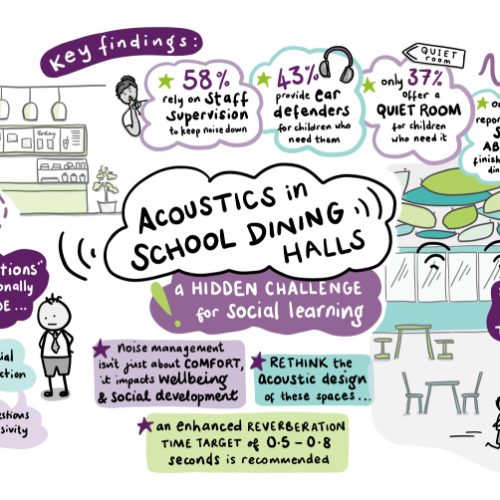 Key findings:
58%
rely on staff
supervision
to keep noise down
43%
provide ear
defenders
for children who
need them
QUIET
room
only 37%
offer a
QUIET ROOM
for children
who need it
ACOUSTICS in
SCHOOL DINING
HALLS
a HIDDEN CHALLENGE
for social learning
noise management
isn't just about COMFORT,
it impacts wellbeing
& social development
RETHINK the
acoustic design
of these spaces...
an enhanced REVERBERATION
TIME TARGET of 0.5 – 0.8
seconds is recommended